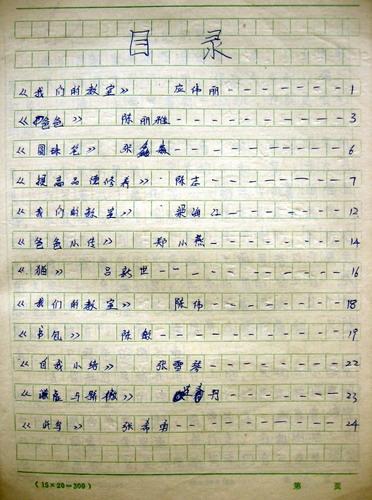 目 录
《我们的教室》 应伟丽 ------- 1
《爸爸》 陈丽雅 -------- 3
《圆珠笔》 张 ------- 6
《提高品德修养》 陈志 ------- 7
《我们的教室》 梁海江 ------- 12
《爸爸小传》 郑小燕 ------- 14
《猫》 吕新世 ------- 16
《我们的教室》 陈伟 ------- 18
《书包》 陈敏 -------- 19
《自我小结》 张雪琴 ------- 22
《谦虚与骄傲》 丹 ------- 23
张希勇 ------- 24
(15×20=300) 第 页